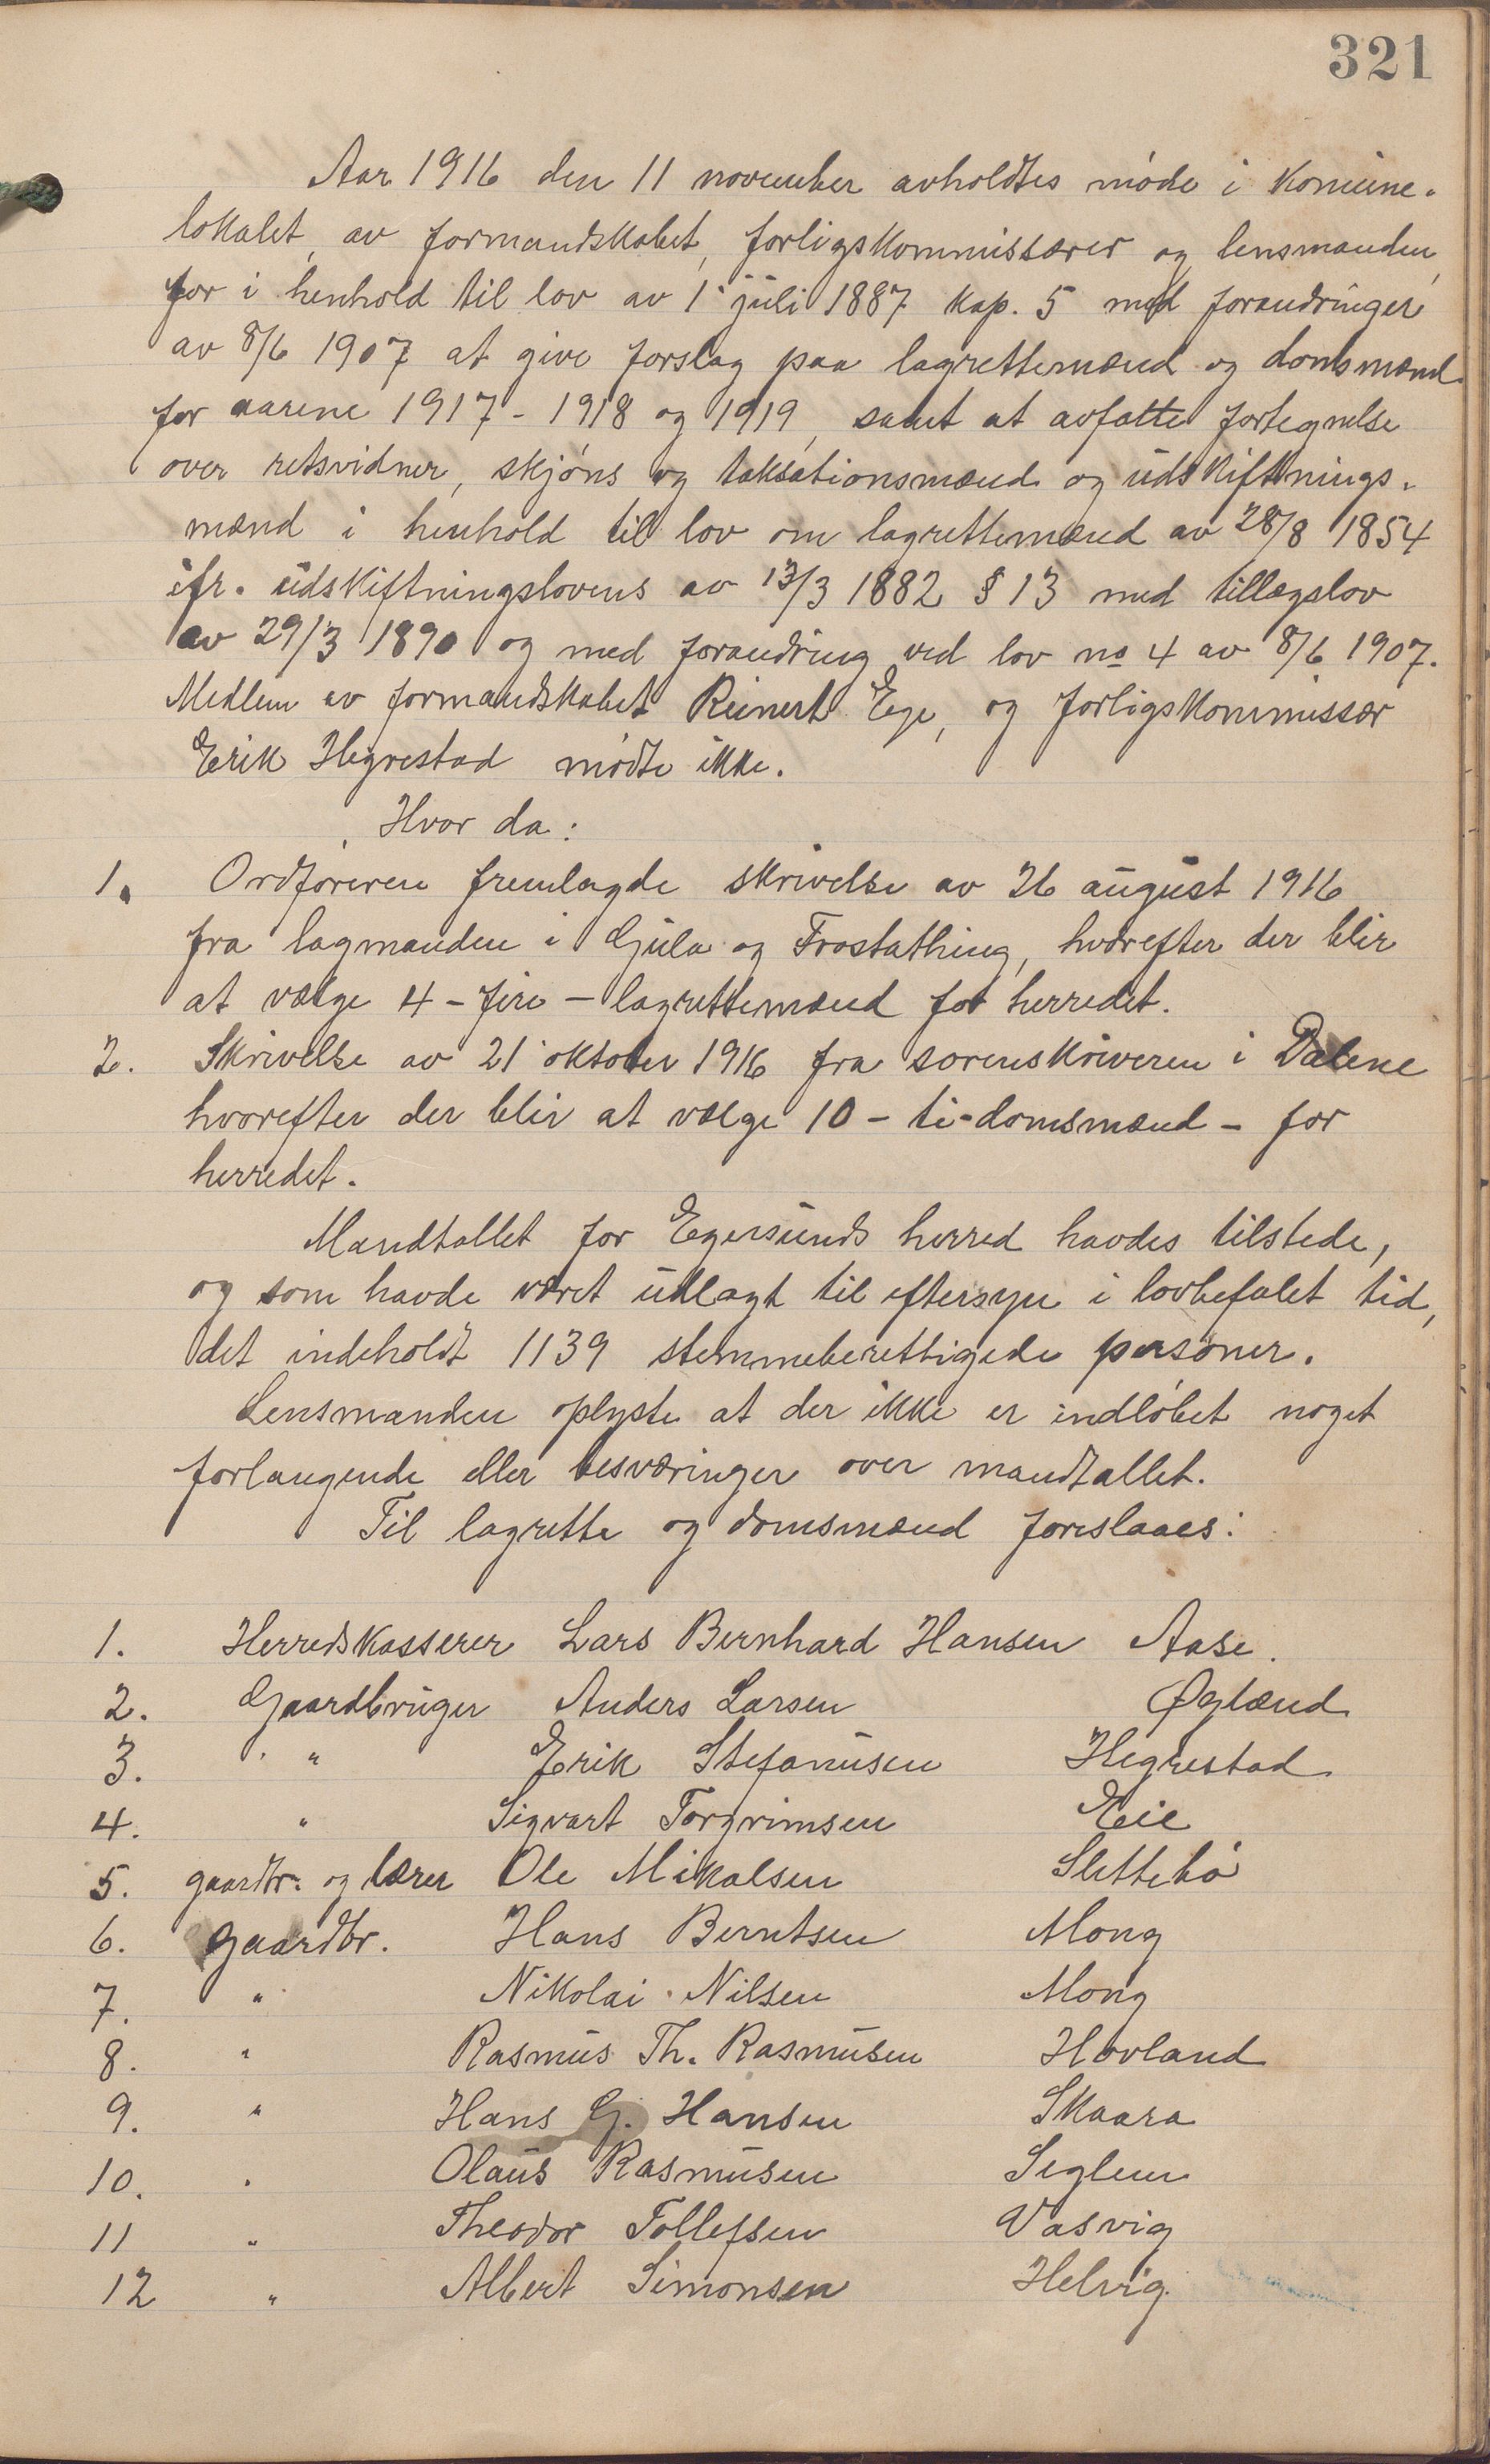 321
Aar 1916 den 11 november avholdtes møde i Komune-
lokalet, av formandskabet, forligskommissærer og lensmanden,
for i henhold til lov av 1 juli 1887 kap. 5 med forandringer
av 8/6 1907 at give forslag paa lagrettemænd og domsmænd
for aarene 1917 - 1918 og 1919, samt at avfatte fortegnelse
over retsvidner, skjøns og taksationsmænd og udskiftnings-
mænd i henhold til lov om lagrettemænd av 28/8 1854
jfr. udskiftningslovens av 13/3 1882 § 13 med tillægslov
av 29/3 1890 og med forandring ved lov no 4 av 8/6 1907.
Medlem av formandskabet Reinert Ege, og forligskommissær
Erik Hegrestad mødte ikke.
Hvor da:
1. Ordføreren fremlagde skrivelse av 26 august 1916
fra lagmanden i Gula og Frostathing, hvorefter der blir
at vælge 4 - fire - lagrettemænd for herredet.
2. Skrivelse av 21 oktober 1916 fra sorenskriveren i Dalene
hvorefter der blir at vælge 10 - ti - domsmænd - for
herredet.
Mandtallet for Egersunds herred havdes tilstede,
og som havde været udlagt til eftersyn i lovbefalet tid,
det indeholdt 1139 stemmeberettigede personer.
Lensmanden oplyste at der ikke er indløbet noget
forlangende eller besværinger over mandtallet.
Til lagrette og domsmænd foreslaaes:
1. Herredskasserer Lars Bernhard Hansen Aase.
2. Gaardbruger Anders Larsen Øglænd
3. " Erik Stefanusen Hegrestad
4. " Sigvart Torgrimsen Eie
5. gaardbr. og lærer Ole Mikalsen Slettebø
6. gaardbr. Hans Berntsen Mong
7. " Nikolai Nilsen Mong
8. " Rasmus Th. Rasmusen Hovland
9. " Hans G. Hansen Skaara
10. " Olaus Rasmusen Seglem
11 " Theodor Tollefsen Vasvig
12 " Albert Simonsen Helvig.